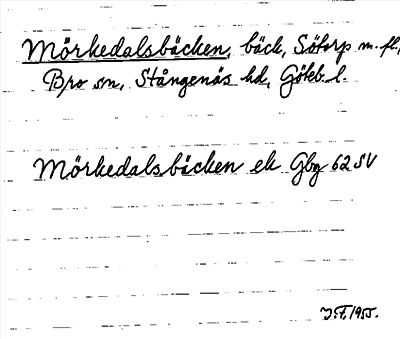 Mörkedalsbäcken, bäck, Sötorp m. fl.,
Bro sn, Stångenäs hd, Göteb. l.
Mörkedalsbäcken ek Gbg 62 SV
J.F. 1955.